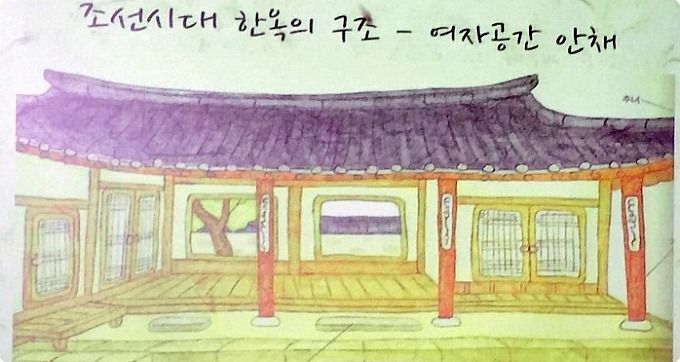 조선시대 한옥의 구조 - 여자공간 안채
추녀